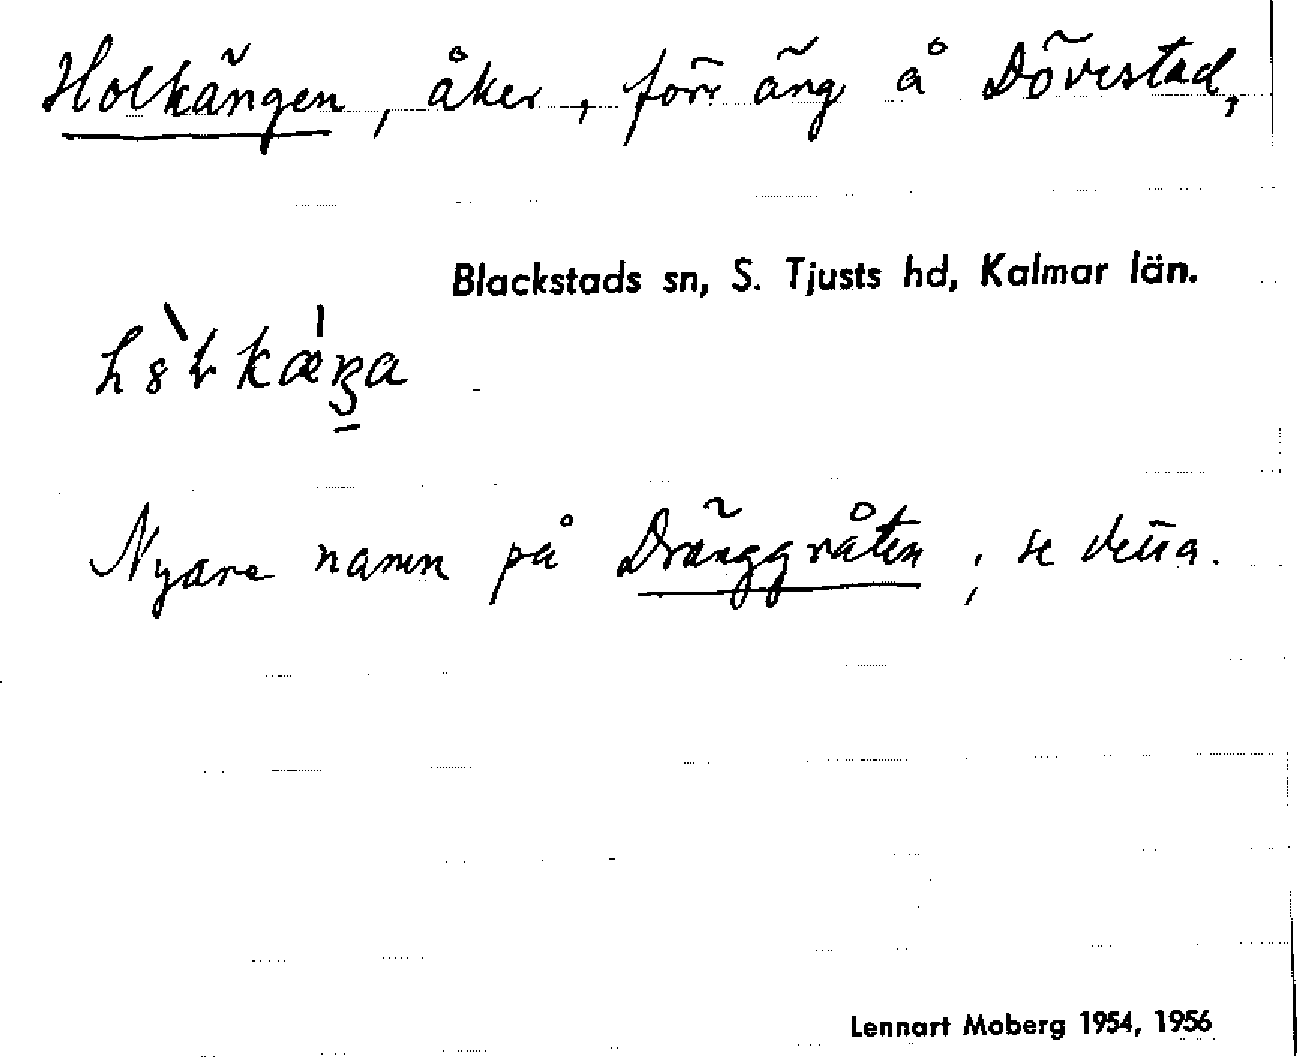 Holkängen, åker, förr äng å Dövestad,
Blackstads sn, S. Tjusts hd, Kalmar län.
Nyare namn på Dränggråten, se detta.
Lennart Moberg 1954, 1956